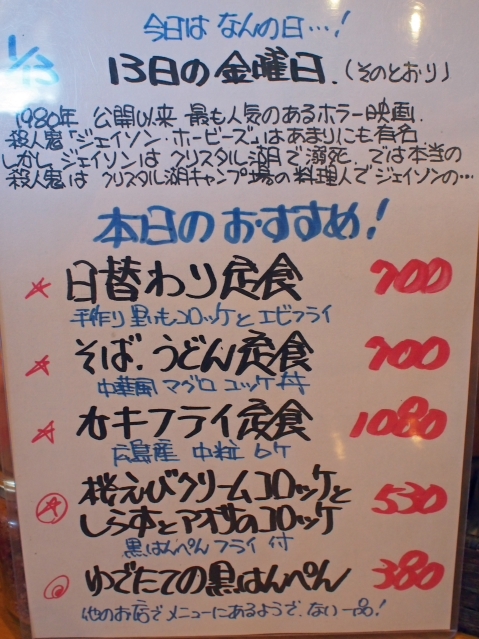 今日は なんの日…!
1/13
13日の金曜日.(そのとおり)
1980年 公開以来 最も人気のあるホラー映画.
殺人鬼「ジェイソン・ホービーズ」はあまりにも有名
しかし ジェイソンは クリスタル湖で溺死. では本当の
殺人鬼は クリスタル湖キャンプ場の料理人でジェイソンの…
本日のおすすめ!
☆ 日替わり定食 700
手作り 里いもコロッケと エビフライ
☆ そば.うどん定食 700
中華風 マグロ ユッケ丼
☆ カキフライ定食 1080
広島産 中粒 6ケ
☆ 桜えびクリームコロッケと 530
しらすとアオサのコロッケ
黒はんぺん フライ 付
◎ ゆでたての黒はんぺん 380
他のお店でメニューにあるようで、ない一品!